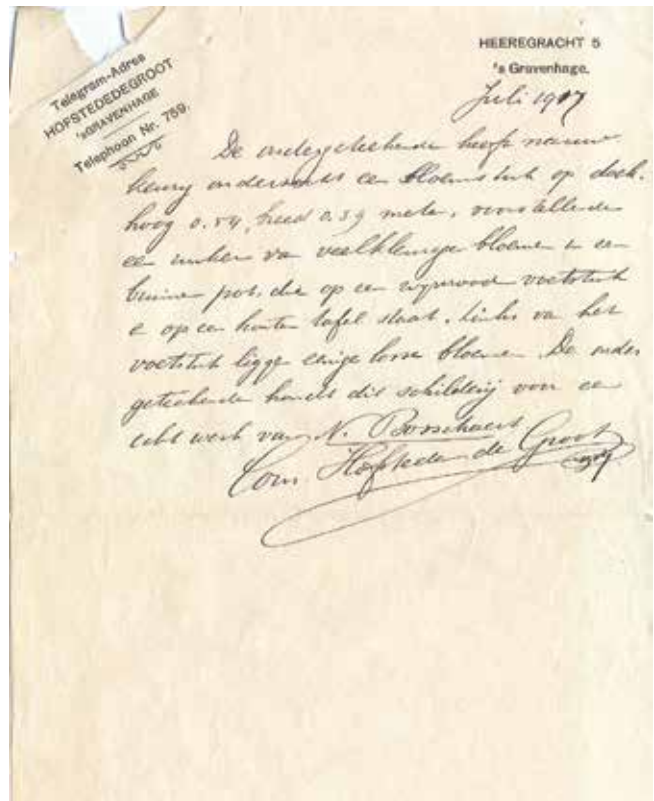 HEEREGRACHT 5
's Gravenhage.
Telegram-Adres
HOFSTEDEDEGROOT
'sGRAVENHAGE
Telephoon Nr. 759.
Juli 1917
De ondergeteekende heeft nauw
keurig onderzocht een Bloemstuk op doek.
hoog 0.54, breed 0.39 meter, voorstellende
een ruiker van veelkleurige bloemen in een
bruine pot, die op een voetstuk
e op een houten tafel staat. Links van het
voetstuk liggen eenige losse bloemen. De onder
geteekende houdt dit schilderij voor een
echt werk van N. Bosschaert
Corn. Hofstede de Groot